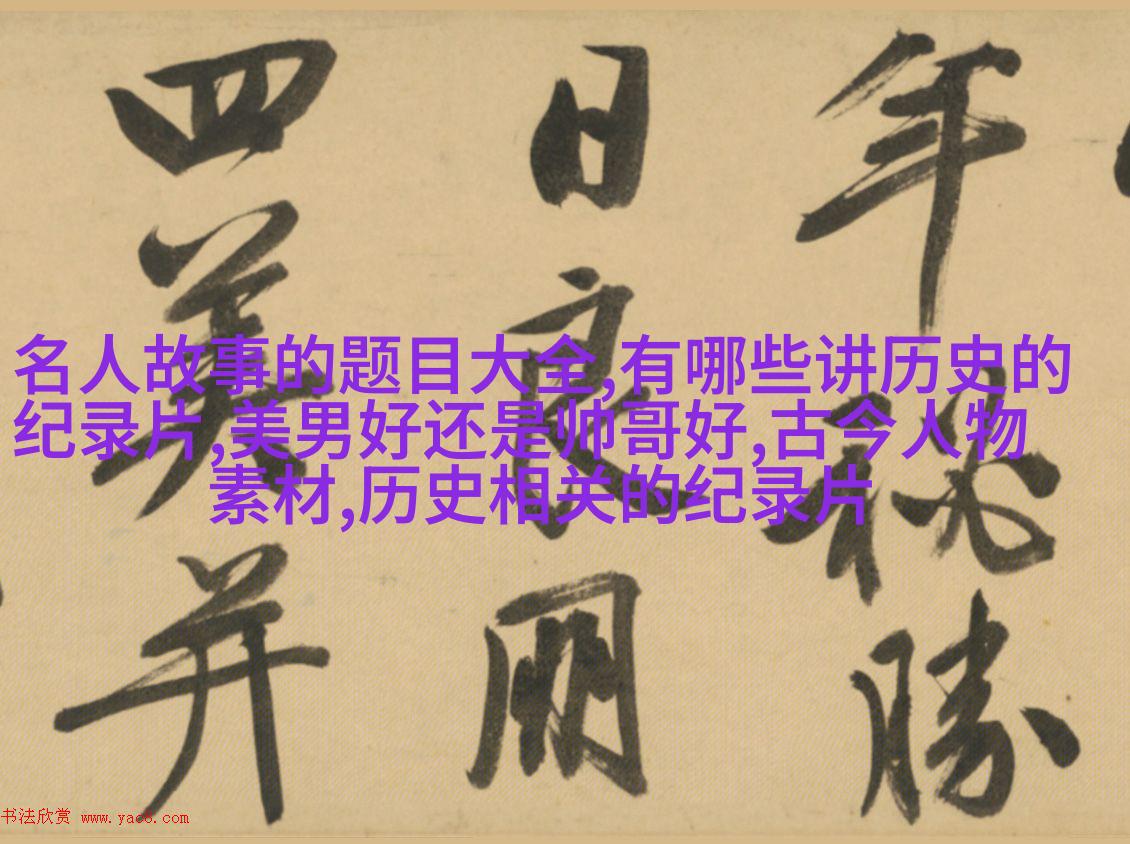 名人故事的题目大全,有哪些讲历史的
纪录片,美男好还是帅哥好,古今人物
素材,历史相关的纪录片
年秘勝
日良朋
四美并
书法欣赏 www.yac8.com